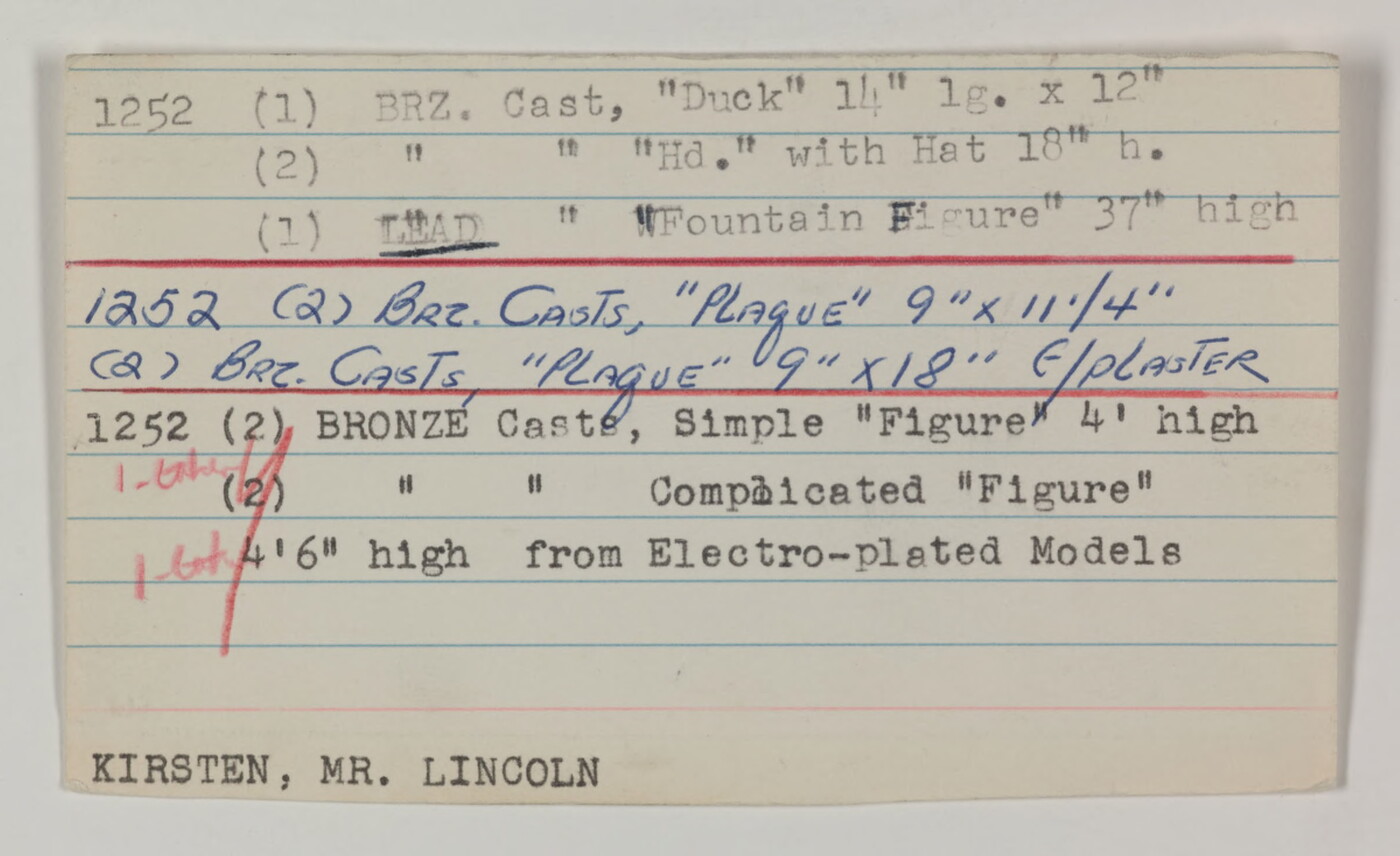 1252 (1) BRZ. Cast, "Duck" 14" lg. x 12"
(2) " " "Hd." with Hat 18" h.
(1) LEAD " "Fountain Figure" 37" high
1252 (2) BRZ. CASTS, "PLAQUE" 9" x 11 1/4"
(2) BRZ. CASTS, "PLAQUE" 9" x 18" F/PLASTER
1252 (2) BRONZE Casts, Simple "Figure" 4' high
1-
(2) " " Complicated "Figure"
1-
4'6" high from Electro-plated Models
KIRSTEN, MR. LINCOLN